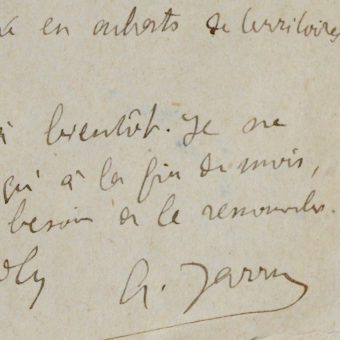 en de territoires
bientôt. Je ne
qu'à la fin du mois,
besoin de le renouveler.
A. Jarry